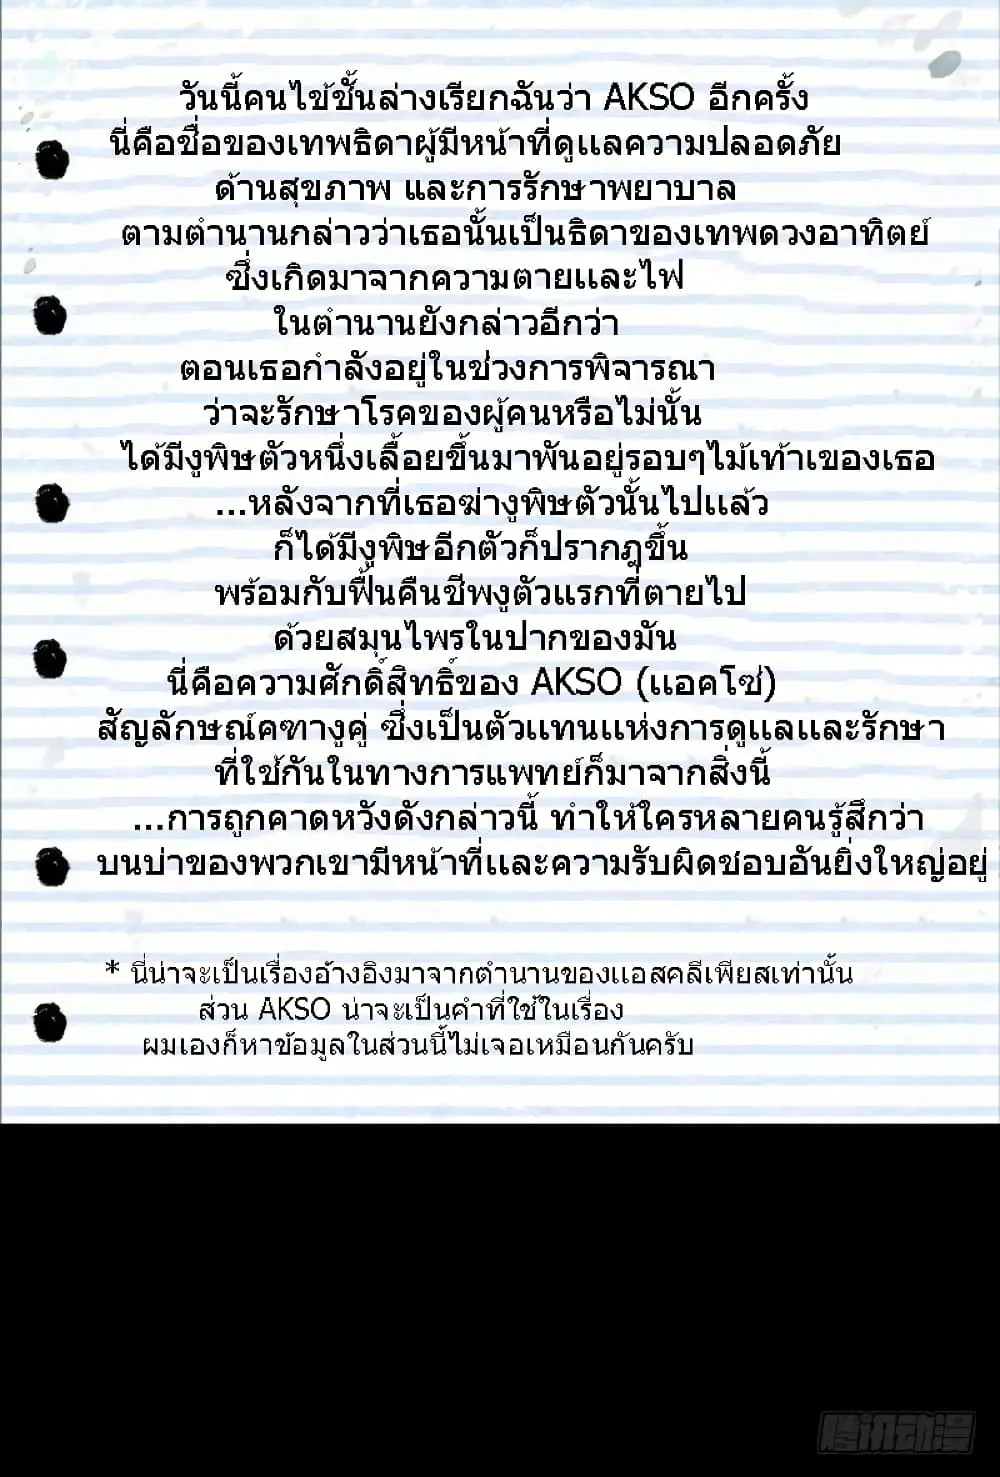 วันนี้คนไข้ชั้นล่างเรียกฉันว่า AKSO อีกครั้ง
นี่คือชื่อของเทพธิดาผู้มีหน้าที่ดูแลความปลอดภัย
ด้านสุขภาพ และการรักษาพยาบาล
ตามตำนานกล่าวว่าเธอนั้นเป็นธิดาของเทพดวงอาทิตย์
ซึ่งเกิดมาจากความตายและไฟ
ในตำนานยังกล่าวอีกว่า
ตอนเธอกำลังอยู่ในช่วงการพิจารณา
ว่าจะรักษาโรคของผู้คนหรือไม่นั้น
ได้มีงูพิษตัวหนึ่งเลื้อยขึ้นมาพันอยู่รอบๆไม้เท้าของเธอ
...หลังจากที่เธอฆ่างูพิษตัวนั้นไปแล้ว
ก็ได้มีงูพิษอีกตัวก็ปรากฎขึ้น
พร้อมกับฟื้นคืนชีพงูตัวแรกที่ตายไป
ด้วยสมุนไพรในปากของมัน
นี่คือความศักดิ์สิทธิ์ของ AKSO (แอคโซ่)
สัญลักษณ์คฑางูคู่ ซึ่งเป็นตัวแทนแห่งการดูแลและรักษา
ที่ใช้กันในทางการแพทย์ก็มาจากสิ่งนี้
...การถูกคาดหวังดังกล่าวนี้ ทำให้ใครหลายคนรู้สึกว่า
บนบ่าของพวกเขามีหน้าที่และความรับผิดชอบอันยิ่งใหญ่อยู่
* นี่น่าจะเป็นเรื่องอ้างอิงมาจากตำนานของแอสคลีเพียสเท่านั้น
ส่วน AKSO น่าจะเป็นคำที่ใช้ในเรื่อง
ผมเองก็หาข้อมูลในส่วนนี้ไม่เจอเหมือนกันครับ
腾讯动漫